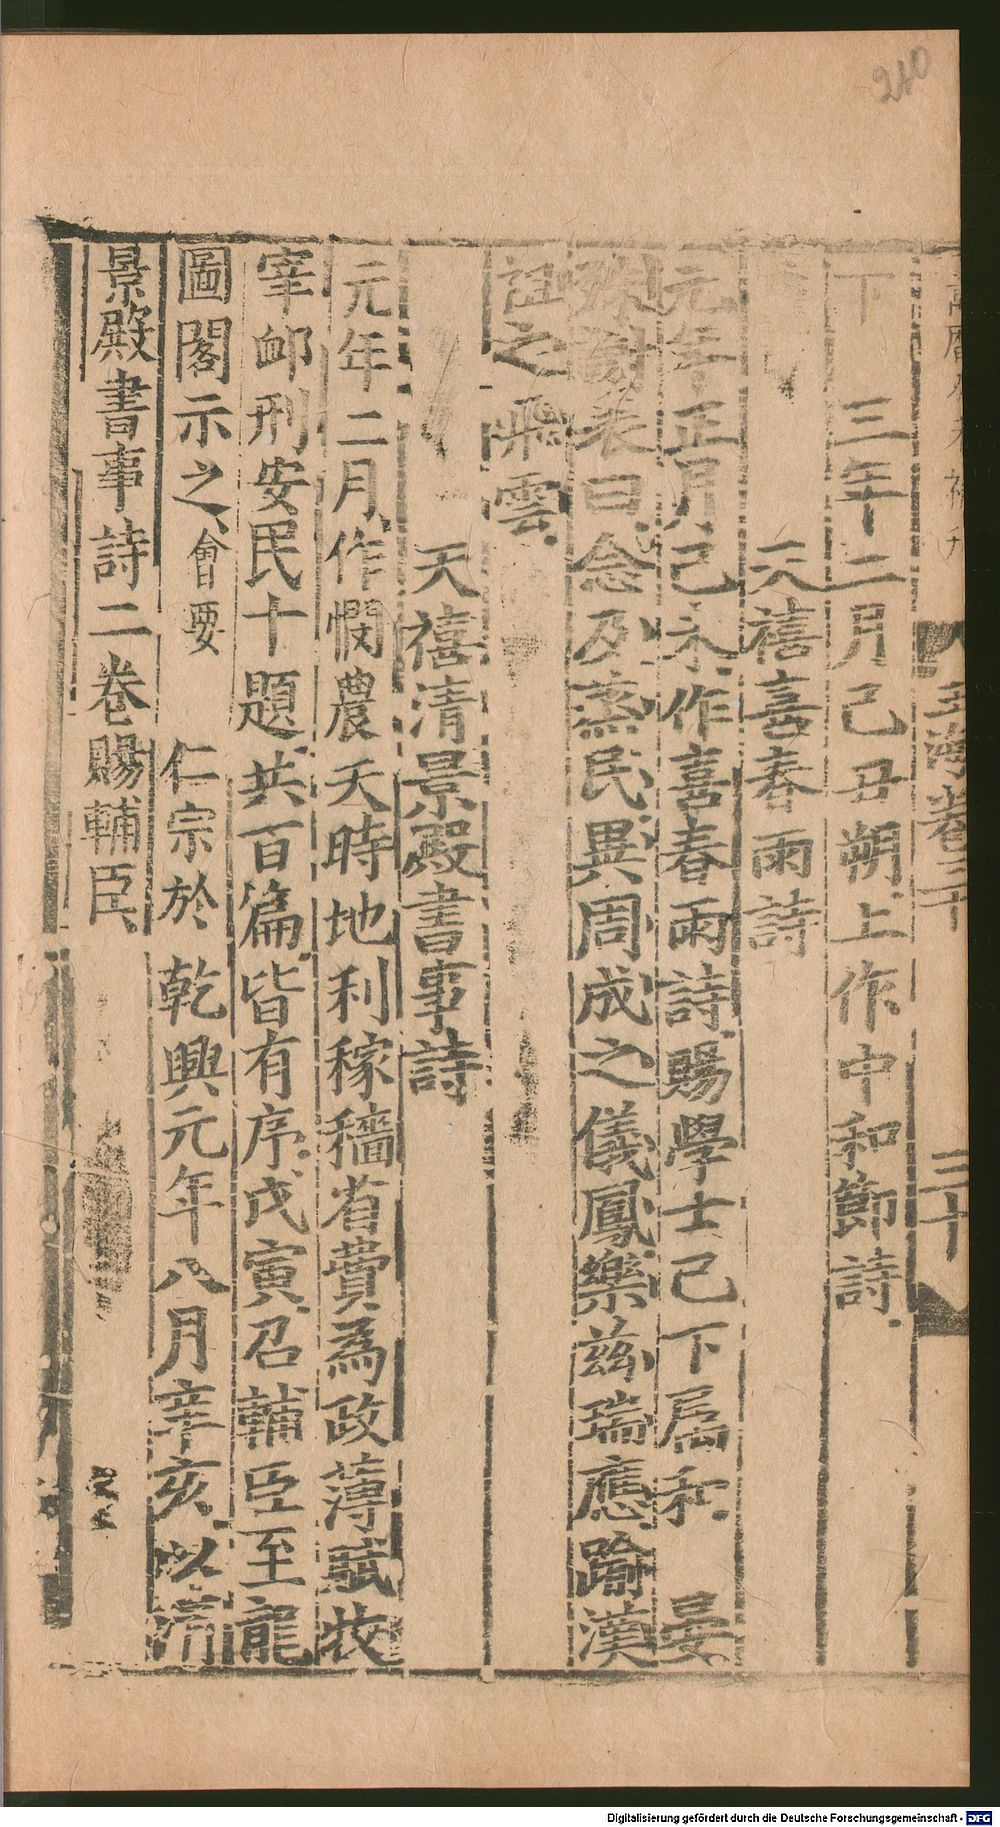 240
玉海卷三十
三十
下　三年二月己丑朔上作中和節詩
天禧喜春雨詩
元年正月己未作喜春雨詩賜學士已下屬和　晏
殊謝表曰念及蒸民異周成之儀鳳樂茲瑞應踰漢
祖之飛雲
天禧清景殿書事詩
元年二月作憫農天時地利稼穡省費為政薄賦牧
宰卹刑安民十題共百篇皆有序戊寅召輔臣至龍
圖閣示之會要　仁宗於乾興元年八月辛亥以清
景殿書事詩二卷賜輔臣
Digitalisierung gefördert durch die Deutsche Forschungsgemeinschaft - DFG